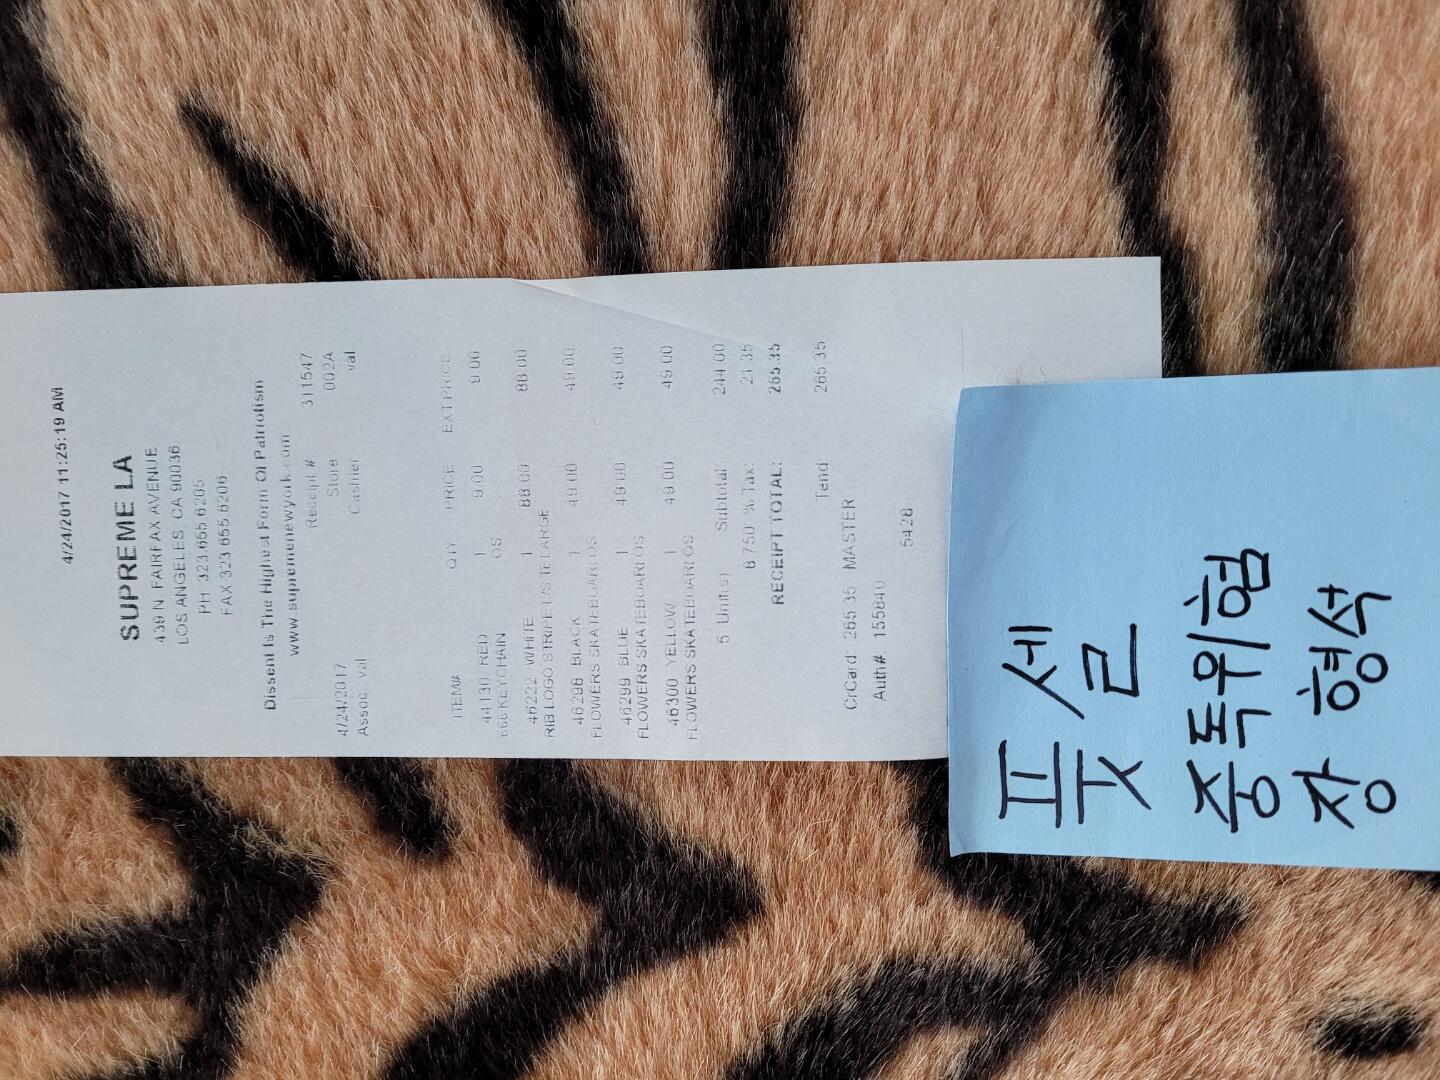 4/24/2017 11:25:19 AM
SUPREME LA
439 N. FAIRFAX AVENUE
LOS ANGELES, CA 90036
PH 323 655 6205
FAX 323 655 6206
Dissent Is The Highest Form Of Patriotism
www.supremenewyork.com
Receipt # 311547
4/24/2017 Store 002A
Assoc val Cashier val
ITEM# QTY PRICE EXT PRICE
44130 RED 1 9.00 9.00
666 KEYCHAIN OS
46222 WHITE 1 88.00 88.00
RIB LOGO STRIPE L/S TE LARGE
46298 BLACK 1 49.00 49.00
FLOWERS SKATEBOARD OS
46299 BLUE 1 49.00 49.00
FLOWERS SKATEBOARD OS
46300 YELLOW 1 49.00 49.00
FLOWERS SKATEBOARD OS
5 Unit(s) Subtotal 244.00
8.750 % Tax: 21.35
RECEIPT TOTAL: 265.35
Tend 265.35
CrCard: 265.35 MASTER
Auth#: 155840
5428
풋셀
중독위험
장형석